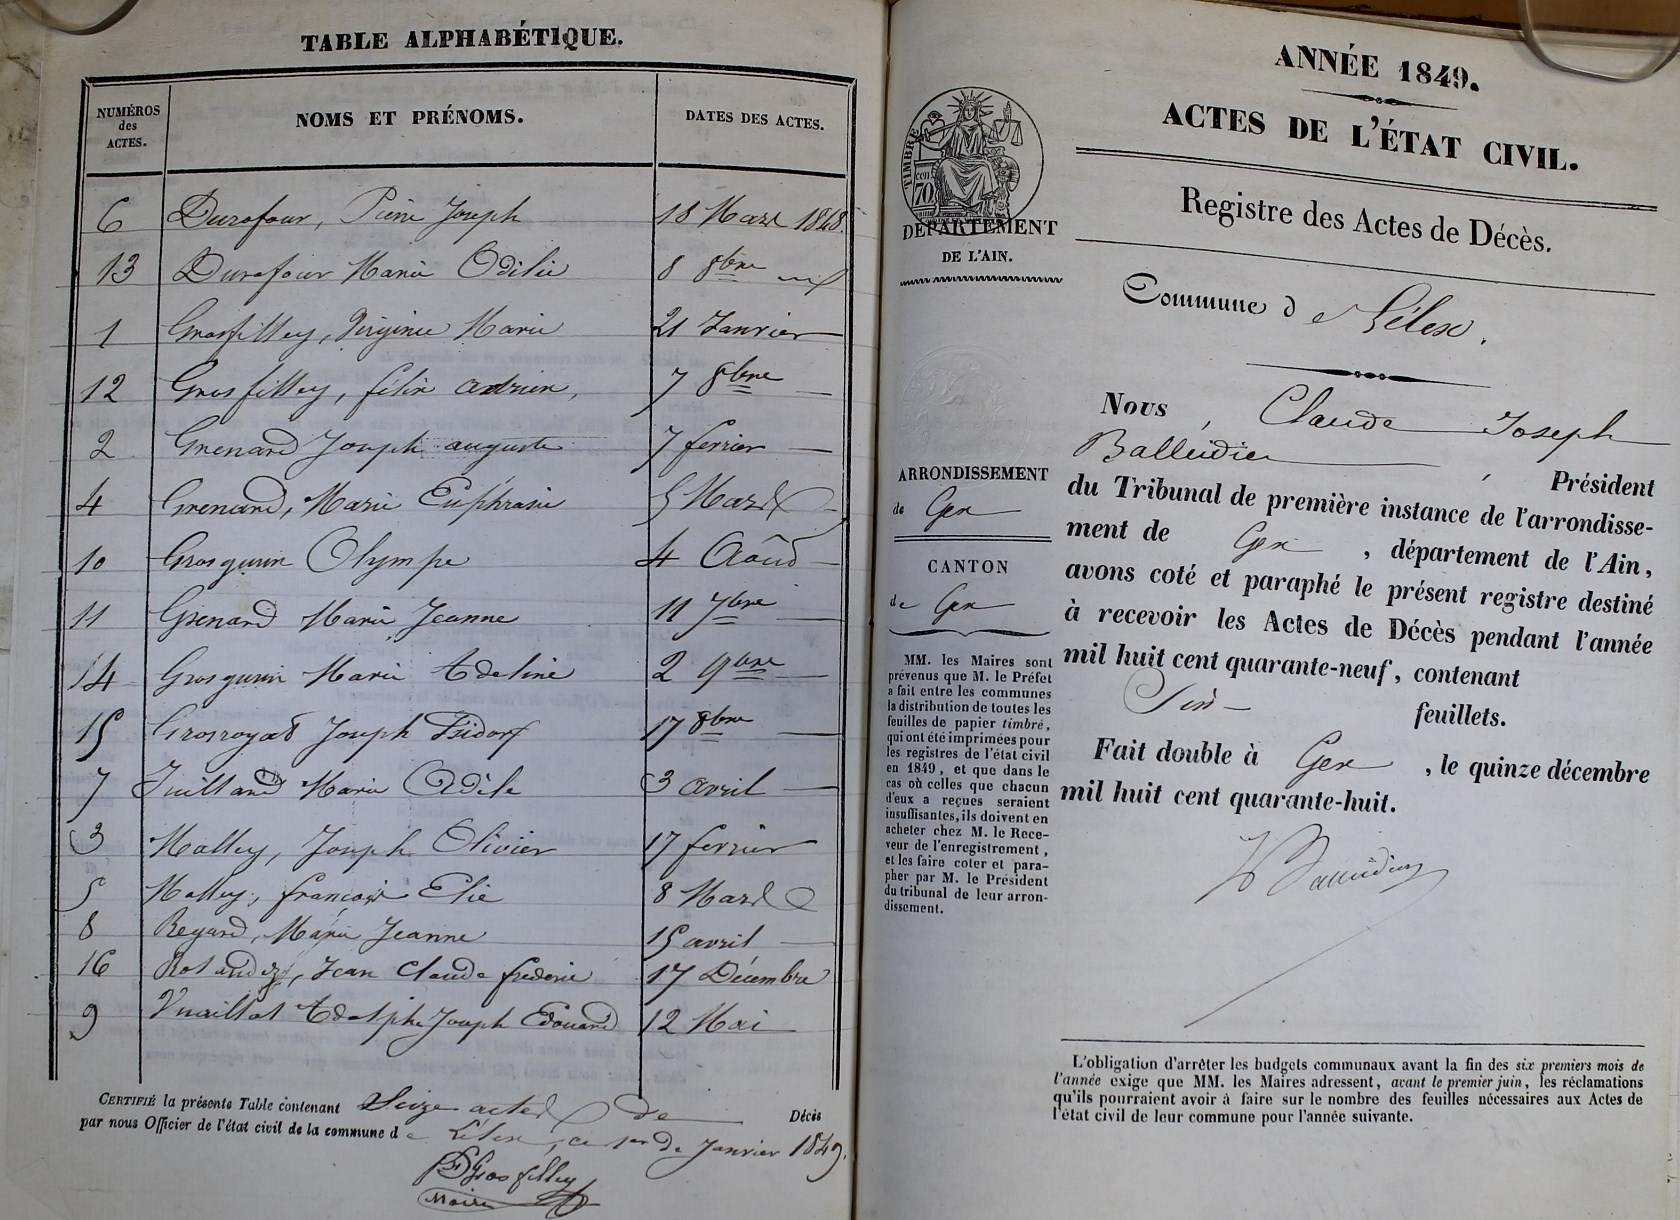 TABLE ALPHABÉTIQUE.
NUMÉROS des ACTES. NOMS ET PRÉNOMS. DATES DES ACTES.
6 Durafour, Pierre Joseph 18 Mars 1848.
13 Durafour Marie Odilie 8 8bre
1 Grosfilley, Virginie Marie 21 Janvier
12 Grosfilley, félix Adrien, 7 8bre
2 Grenard Joseph auguste 7 fevrier
4 Grenard, Marie Euphrasie 5 Mars
10 Grosgurin Olympe 4 Août
11 Grenard Marie Jeanne 11 7bre
14 Grosgurin Marie Adeline 2 9bre
15 Grosroyat Joseph Isidor 17 8bre
7 Juilland Marie Odile 3 avril
3 Malley, Joseph Olivier 17 fevrier
5 Malley, françois Elie 8 Mars
8 Regard, Marie Jeanne 15 avril
16 Rolandez, Jean Claude frederic 17 Décembre
9 Vuaillat Adolphe Joseph Edouard 12 Mai
CERTIFIÉ la présente Table contenant Seize actes de Décès
par nous Officier de l'état civil de la commune de Lélex, ce 1er de Janvier 1849.
Grosfilley
Maire
ANNÉE 1849.
ACTES DE L'ÉTAT CIVIL.
Registre des Actes de Décès.
TIMBRE
cen
70.
DÉPARTEMENT
DE L'AIN.
Commune de Lélex.
ARRONDISSEMENT
de Gex
CANTON
de Gex
MM. les Maires sont
prévenus que M. le Préfet
a fait entre les communes
la distribution de toutes les
feuilles de papier timbré,
qui ont été imprimées pour
les registres de l'état civil
en 1849, et que dans le
cas où celles que chacun
d'eux a reçues seraient
insuffisantes, ils doivent en
acheter chez M. le Rece-
veur de l'enregistrement,
et les faire coter et para-
pher par M. le Président
du tribunal de leur arron-
dissement.
Nous, Claude Joseph
Balleidier, Président
du Tribunal de première instance de l'arrondisse-
ment de Gex, département de l'Ain,
avons coté et paraphé le présent registre destiné
à recevoir les Actes de Décès pendant l'année
mil huit cent quarante-neuf, contenant
Six feuillets.
Fait double à Gex, le quinze décembre
mil huit cent quarante-huit.
L'obligation d'arrêter les budgets communaux avant la fin des six premiers mois de
l'année exige que MM. les Maires adressent, avant le premier juin, les réclamations
qu'ils pourraient avoir à faire sur le nombre des feuilles nécessaires aux Actes de
l'état civil de leur commune pour l'année suivante.